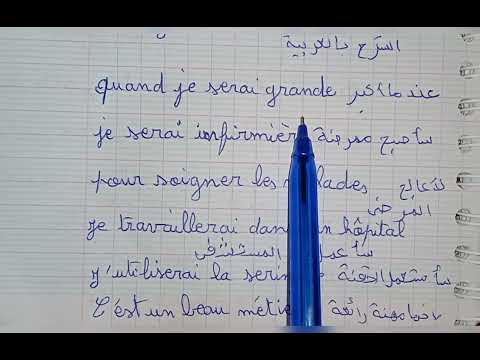 الشرح بالعربية
quand je serai grande عندما أكبر
je serai infirmière سأصبح ممرضة
pour soigner les malades لأعالج
المرضى
je travaillerai dans un hôpital
سأعمل المستشفى
j'utiliserai la serin سأستعمل الحقنة
C'est un beau métie مهنة رائعة